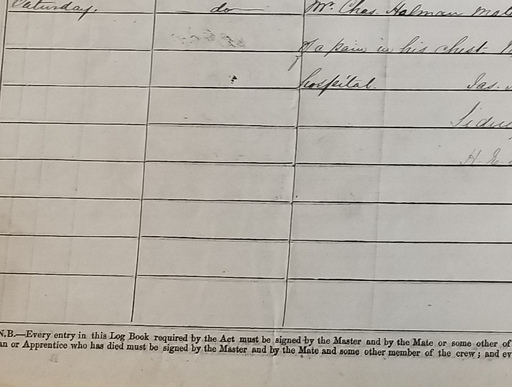 Saturday. do Mr. Chas. Halman Mate
of a pain in his chest.
hospital. Jas.
N.B.—Every entry in this Log Book required by the Act must be signed by the Master and by the Mate or some other of
an or Apprentice who has died must be signed by the Master and by the Mate and some other member of the crew; and ev